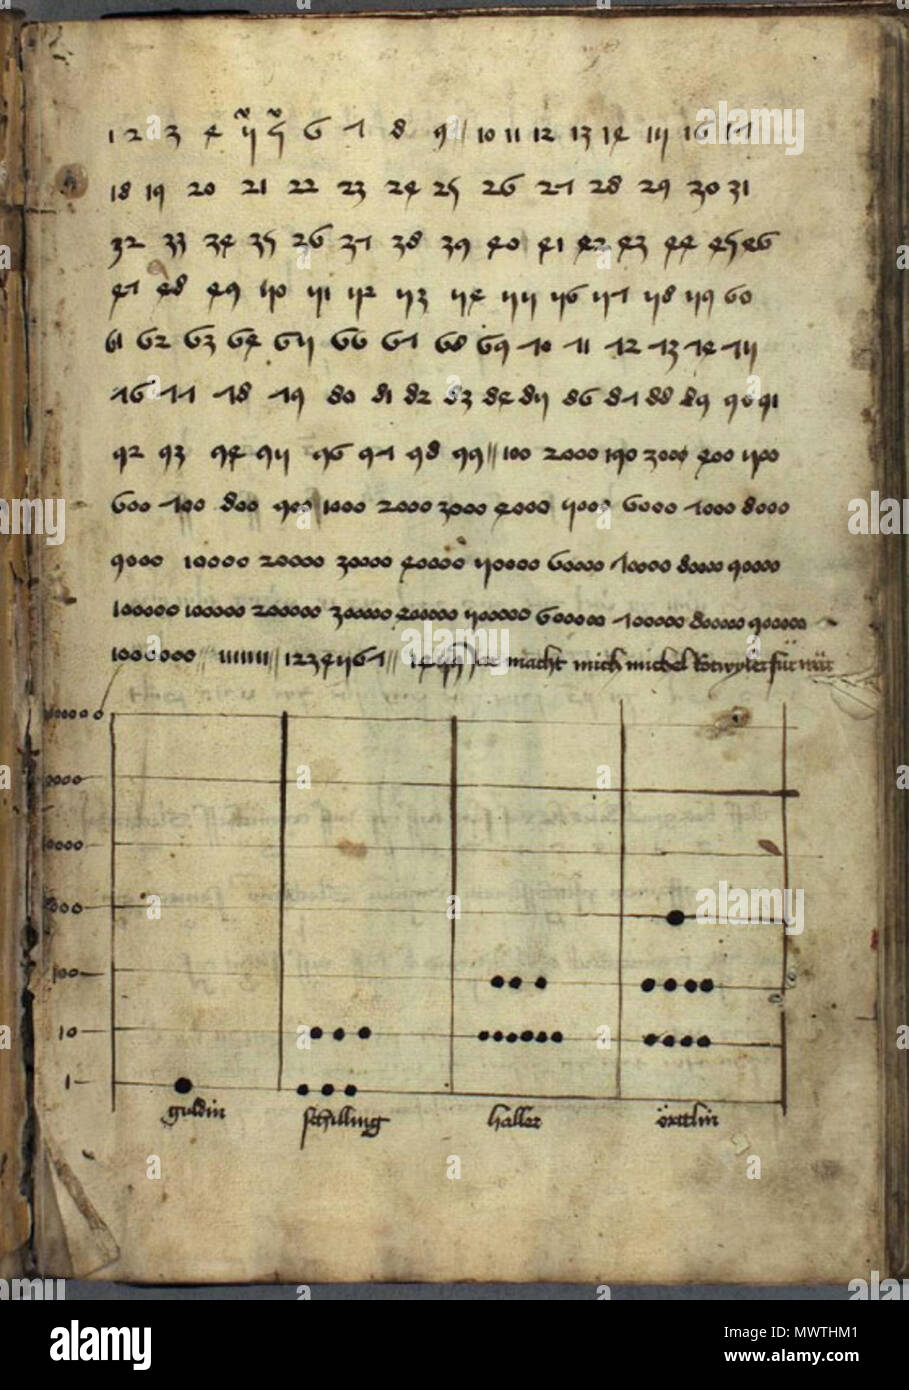 1 2 3 4 5 5 6 7 8 9 // 10 11 12 13 14 15 16 17
18 19 20 21 22 23 24 25 26 27 28 29 30 31
32 33 34 35 26 37 38 39 40 41 42 43 44 45 46
47 48 49 50 51 52 53 54 55 56 57 58 59 60
61 62 63 64 65 66 67 68 69 70 71 72 73 74 75
76 77 78 79 80 81 82 83 84 85 86 87 88 89 90 91
92 93 94 95 96 97 98 99 // 100 2000 190 3000 400 500
600 700 800 900 1000 2000 3000 4000 5000 6000 7000 8000
9000 10000 20000 30000 40000 50000 60000 70000 80000 90000
100000 100000 200000 300000 400000 500000 600000 700000 800000 900000
1000000 // 1111111 // 1234567 // macht mich michel
1000
100
10
1
guldin schilling haller örttlin
alamy
Image ID: MWTHM1
www.alamy.com